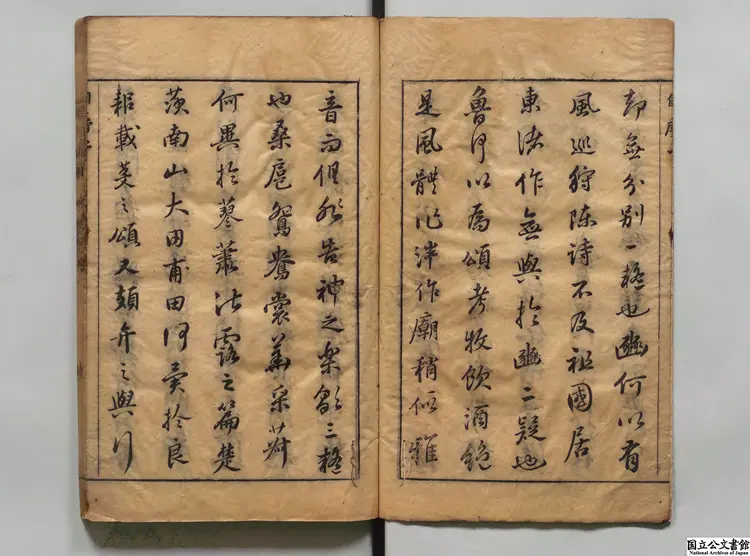 却無分別一疑也豳何以有
風巡狩陳詩不及祖國居
東諸作無與於豳二疑也
魯何以為頌考牧飲酒絕
是風體作泮作廟稍似雅
音而俱非告神之樂歌三疑
也桑扈鴛鴦裳華采菽
何異於蓼蕭湛露之篇楚
茨南山大田甫田何異於良
耜載芟之頌又頍弁之與行
国立公文書館
National Archives of Japan